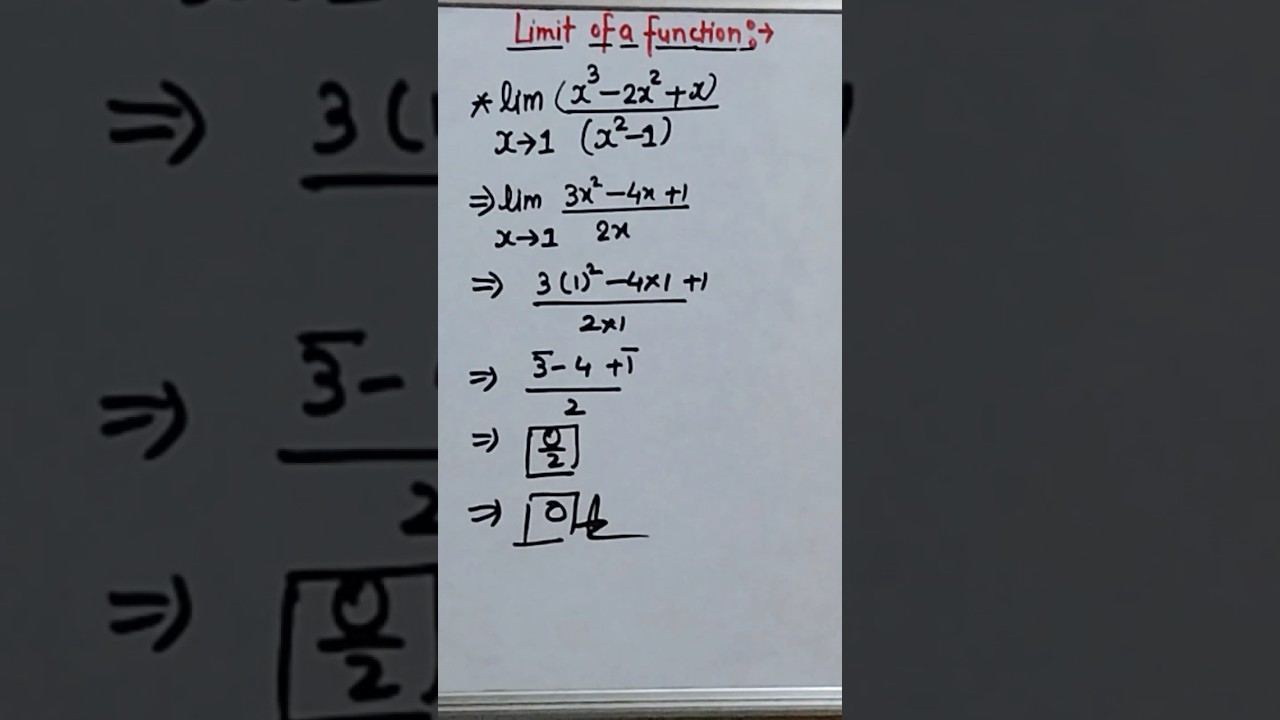 Limit of a function:→
* lim (x³-2x²+x)
x→1 (x²-1)
⇒ lim 3x²-4x+1
x→1 2x
⇒ 3(1)²-4×1+1
2×1
⇒ 3-4+1
2
⇒ 0
2
⇒ 0